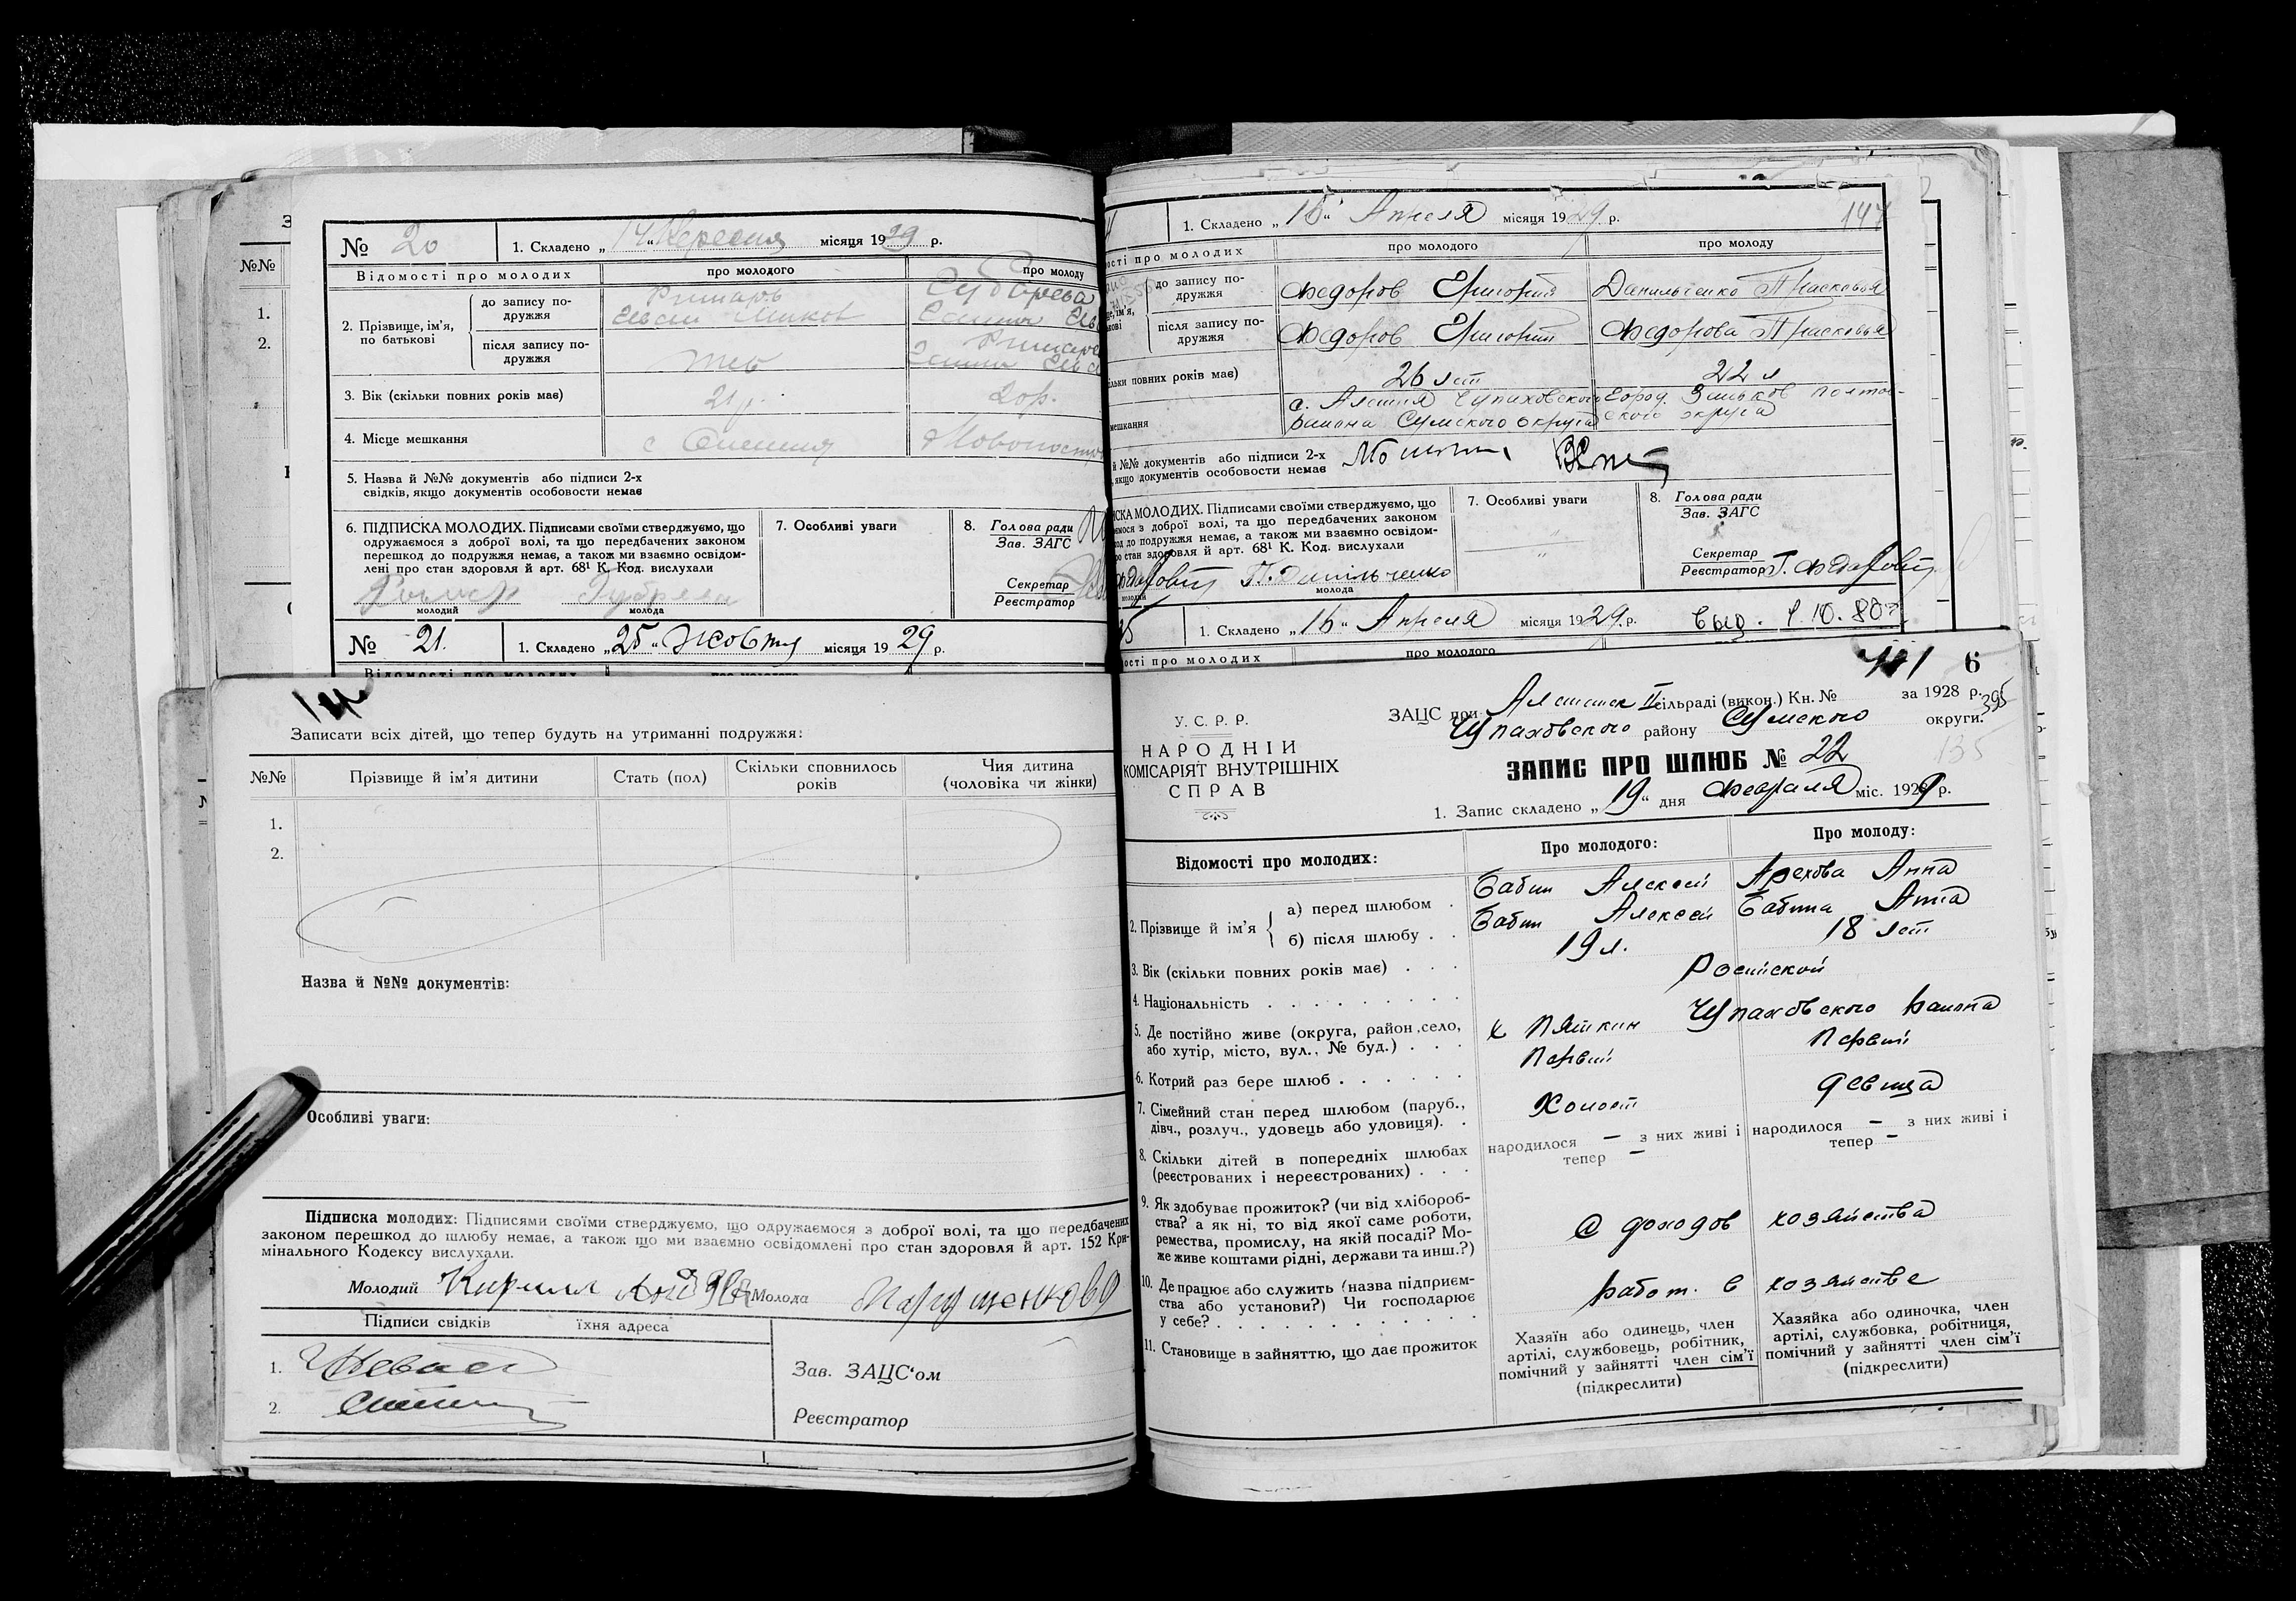 № 20
1. Складено „14“ Вересня місяця 1929 р.
Відомості про молодих
про молодого
про молоду
2. Прізвище, ім’я, по батькові
до запису подружжя
після запису подружжя
3. Вік (скільки повних років має)
21 р.
20 р.
4. Місце мешкання
5. Назва й №№ документів або підписи 2-х
свідків, якщо документів особовости немає
6. ПІДПИСКА МОЛОДИХ. Підписами своїми стверджуємо, що
одружаємося з доброї волі, та що передбачених законом
перешкод до подружжя немає, а також ми взаємно освідом-
лені про стан здоровля й арт. 68¹ К. Код. вислухали
молодий
молода
7. Особливі уваги
8. Голова ради
Зав. ЗАГС
Секретар
Реєстратор
№ 21.
1. Складено „25“ Жовтня місяця 1929 р.
№№
1.
2.
Записати всіх дітей, що тепер будуть на утриманні подружжя:
№№
Прізвище й ім’я дитини
Стать (пол)
Скільки сповнилось
років
Чия дитина
(чоловіка чи жінки)
1.
2.
Назва й №№ документів:
Особливі уваги:
Підписка молодих: Підписями своїми стверджуємо, що одружаємося з доброї волі, та що передбачених
законом перешкод до шлюбу немає, а також що ми взаємно освідомлені про стан здоровля й арт. 152 Кри-
мінального Кодексу вислухали.
Молодий Кирилл
Молода
Підписи свідків
їхня адреса
1.
2.
Зав. ЗАЦС‘ом
Реєстратор
1. Складено „16“ Апреля місяця 1929 р.
147
ості про молодих
про молодого
про молоду
до запису по-
дружжя
Федоров Григорий
Данильченко Прасковья
після запису по-
дружжя
Федоров Григорий
Федорова Прасковья
ільки повних років має)
26 лет
22 л
мешкання
с. Алешня Чупаховского
района Сумского округа
город. Зиньков полтав-
ского округа
й №№ документів або підписи 2-х
якщо документів особовости немає
ИСКА МОЛОДИХ. Підписами своїми стверджуємо, що
ємося з доброї волі, та що передбачених законом
од до подружжя немає, а також ми взаємно освідом-
ро стан здоровля й арт. 68¹ К. Код. вислухали
П. Данильченко
молодий
молода
7. Особливі уваги
8. Голова ради
Зав. ЗАГС
Секретар
Реєстратор
25
1. Складено „16“ Апреля місяця 1929 р.
ості про молодих
про молодого
6
У.С.Р.Р.
НАРОДНІЙ
КОМІСАРІЯТ ВНУТРІШНІХ
СПРАВ
ЗАЦС при Алешнск II сільраді (викон.) Кн. № за 1928 р.
395
Чупаховского району Сумского округи.
135
ЗАПИС ПРО ШЛЮБ № 22
1. Запис складено „19“ дня Февраля міс. 1929 р.
Відомості про молодих:
Про молодого:
Про молоду:
2. Прізвище й ім’я
а) перед шлюбом
Бабин Алексей
Арехова Анна
б) після шлюбу
Бабин Алексей
Бабина Анна
3. Вік (скільки повних років має)
19 л.
18 лет
4. Національність
Росийской
5. Де постійно живе (округа, район, село,
або хутір, місто, вул., № буд.)
х Пяткин Чупаховского района
6. Котрий раз бере шлюб
Первый
Первый
7. Сімейний стан перед шлюбом (паруб.,
дівч., розлуч., удовець або удовиця).
Холост
девица
8. Скільки дітей в попередніх шлюбах
(реєстрованих і нереєстрованих)
народилося — з них живі і
тепер —
народилося — з них живі і
тепер —
9. Як здобуває прожиток? (чи від хлібороб-
ства? а як ні, то від якої саме роботи,
ремества, промислу, на якій посаді? Мо-
же живе коштами рідні, держави та инш.?)
с доходов хозяйства
10. Де працює або служить (назва підприєм-
ства або установи?) Чи господарює
у себе?
работ. в хозяйстве
11. Становище в зайняттю, що дає прожиток
Хазяїн або одинець, член
артілі, службовець, робітник,
помічний у зайнятті член сім’ї
(підкреслити)
Хазяйка або одиночка, член
артілі, службовка, робітниця,
помічний у зайнятті член сім’ї
(підкреслити)